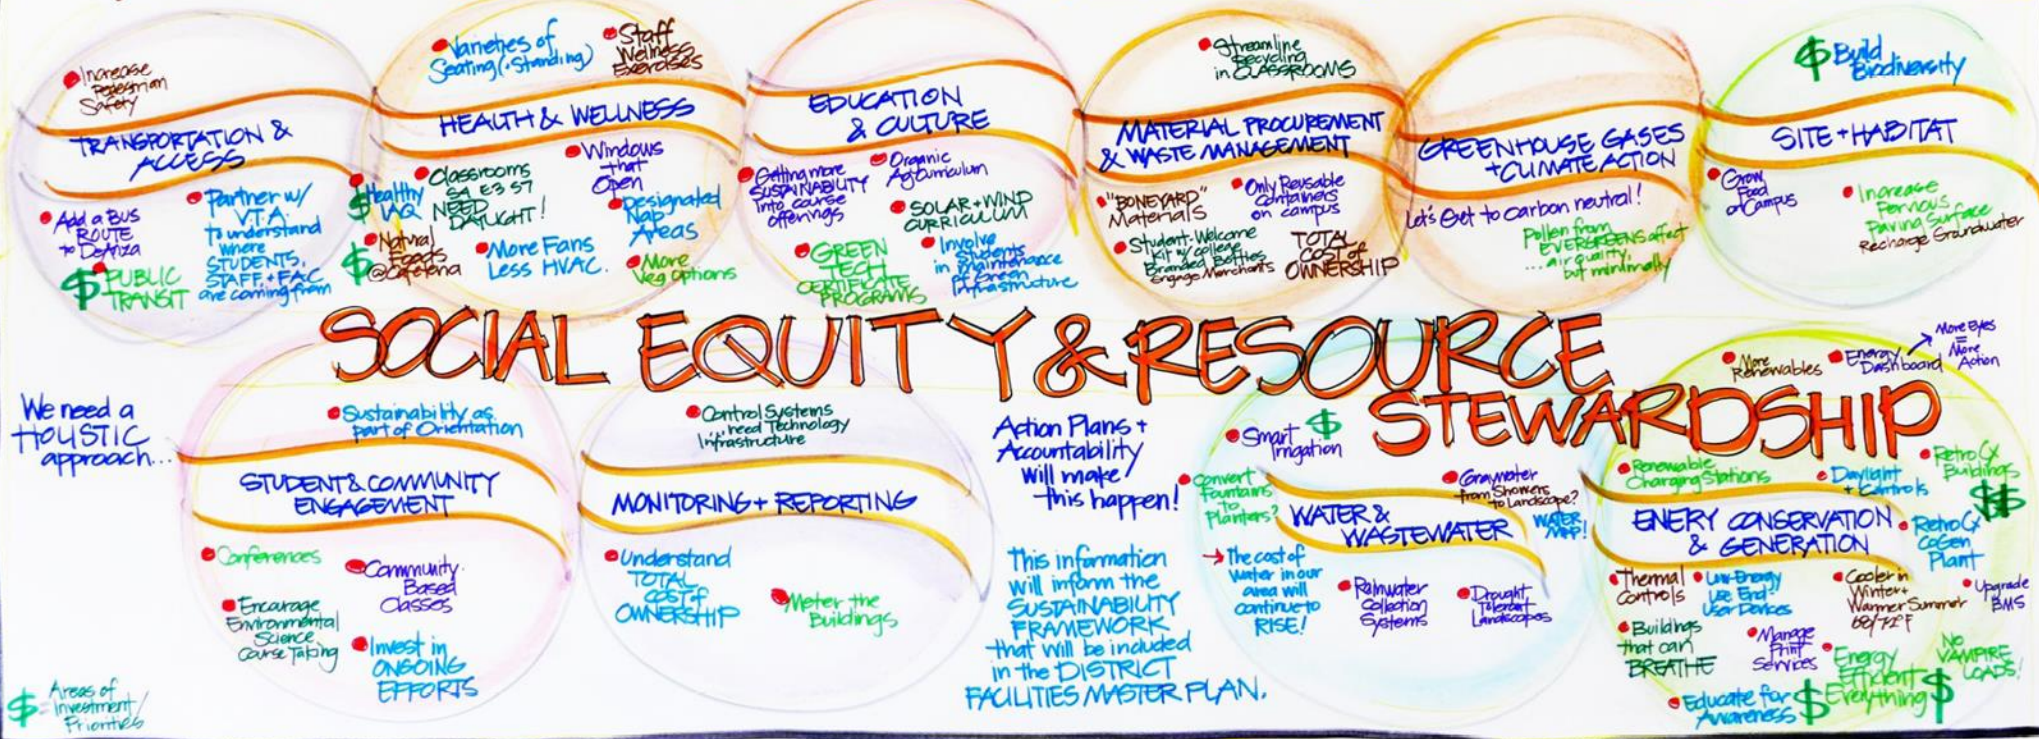 Increase
Pedestrian
Safety
TRANSPORTATION &
ACCESS
Add a BUS
ROUTE
to DeAnza
$ PUBLIC
TRANSIT
Partner w/
V.T.A.
to understand
where
STUDENTS,
STAFF + FAC
are coming from
Varieties of
Seating (+ Standing)
Staff
Wellness
Exercises
HEALTH & WELLNESS
$ Healthy
IAQ
Classrooms
S4 E3 S7
NEED
DAYLIGHT!
Windows
that
Open
Designated
Nap
Areas
$ Natural
Foods
@ Cafeteria
More Fans
Less HVAC.
More
Veg options
EDUCATION
& CULTURE
Getting more
SUSTAINABILITY
into course
offerings
Organic
Ag Curriculum
SOLAR + WIND
CURRICULUM
GREEN
TECH
CERTIFICATE
PROGRAMS
Involve
Students
in maintenance
of Green
Infrastructure
Streamline
Recycling
in CLASSROOMS
MATERIAL PROCUREMENT
& WASTE MANAGEMENT
"BONEYARD"
Materials
Only Reusable
Containers
on campus
Student-Welcome
Kit w/ college
Branded Bottles
Engage Merchants
TOTAL
COST of
OWNERSHIP
GREENHOUSE GASES
+ CLIMATE ACTION
Let's Get to carbon neutral!
Pollen from
EVERGREENS affect
...air quality,
but minimally
$ Build
Biodiversity
SITE + HABITAT
Grow
Food
on Campus
Increase
Pervious
Paving Surface
Recharge Groundwater
SOCIAL EQUITY & RESOURCE
STEWARDSHIP
We need a
HOLISTIC
approach...
Sustainability as
part of Orientation
STUDENT & COMMUNITY
ENGAGEMENT
Conferences
Community
Based
Classes
Encourage
Environmental
Science
Course Taking
Invest in
ONGOING
EFFORTS
$ = Areas of
Investment/
Priorities
Control Systems
need Technology
Infrastructure
MONITORING + REPORTING
Understand
TOTAL
COST of
OWNERSHIP
Meter the
Buildings
Action Plans +
Accountability
will make
this happen!
This information
will inform the
SUSTAINABILITY
FRAMEWORK
that will be included
in the DISTRICT
FACILITIES MASTER PLAN.
Smart $
Irrigation
Convert
Fountains
to
Planters?
Graywater
from Showers
to Landscape?
WATER &
WASTEWATER
WATER
MAP!
The cost of
water in our
area will
continue to
RISE!
Rainwater
Collection
Systems
Drought
Tolerant
Landscapes
More
Renewables
Energy
Dashboard
More Eyes
=
More
Action
Renewable
Charging Stations
Daylight
+ Controls
Retro Cx
Buildings
$$
ENERY CONSERVATION
& GENERATION
Retro Cx
CoGen
Plant
Thermal
Controls
Low-Energy
Use End
User Devices
Cooler in
Winter +
Warmer Summer
68/72°F
Upgrade
BMS
Buildings
that can
BREATHE
Manage
Print
Services
Energy
Efficient
$ Everything $
NO
VAMPIRE
LOADS!
Educate for
Awareness